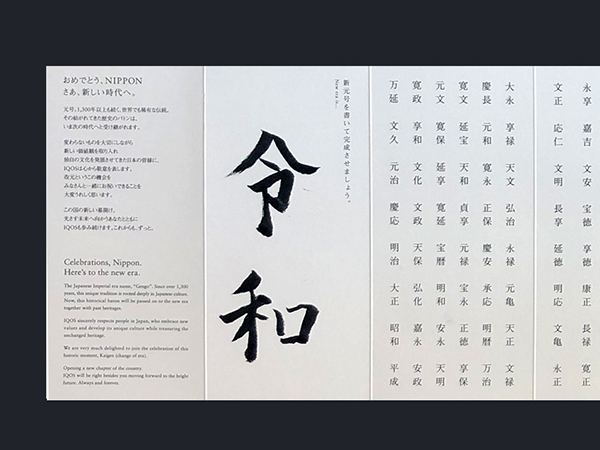 おめでとう、NIPPON
さあ、新しい時代へ。
元号。1,300年以上も続く、世界でも稀有な伝統。
その結がれてきた歴史のバトンは、
いま次の時代へと受け継がれます。
変わらないものを大切にしながら
新しい価値観を取り入れ
独自の文化を発展させてきた日本の皆様に、
IQOSは心から敬意を表します。
改元というこの機会を
みなさんと一緒にお祝いできることを
大変うれしく思います。
この国の新しい幕開け。
光さす未来へ向かうあなたとともに
IQOSも歩み続けます。これからも、ずっと。
Celebrations, Nippon.
Here's to the new era.
The Japanese Imperial era name, "Gengo". Since over 1,300
years, this unique tradition is rooted deeply in Japanese culture.
Now, this historical baton will be passed on to the new era
together with past heritages.
IQOS sincerely respects people in Japan, who embrace new
values and develop its unique culture while treasuring the
unchanged heritage.
We are very much delighted to join the celebration of this
historic moment, Kaigen (change of era).
Opening a new chapter of the country.
IQOS will be right besides you moving forward to the bright
future. Always and forever.
新元号を書いて完成させましょう。
New era is...
令和
永享 嘉吉 文安 宝徳 享徳 康正 長禄 寛正
文正 応仁 文明 長享 延徳 明応 文亀 永正
大永 享禄 天文 弘治 永禄 元亀 天正 文禄
慶長 元和 寛永 正保 慶安 承応 明暦 万治
寛文 延宝 天和 貞享 元禄 宝永 正徳 享保
元文 寛保 延享 寛延 宝暦 明和 安永 天明
寛政 享和 文化 文政 天保 弘化 嘉永 安政
万延 文久 元治 慶応 明治 大正 昭和 平成